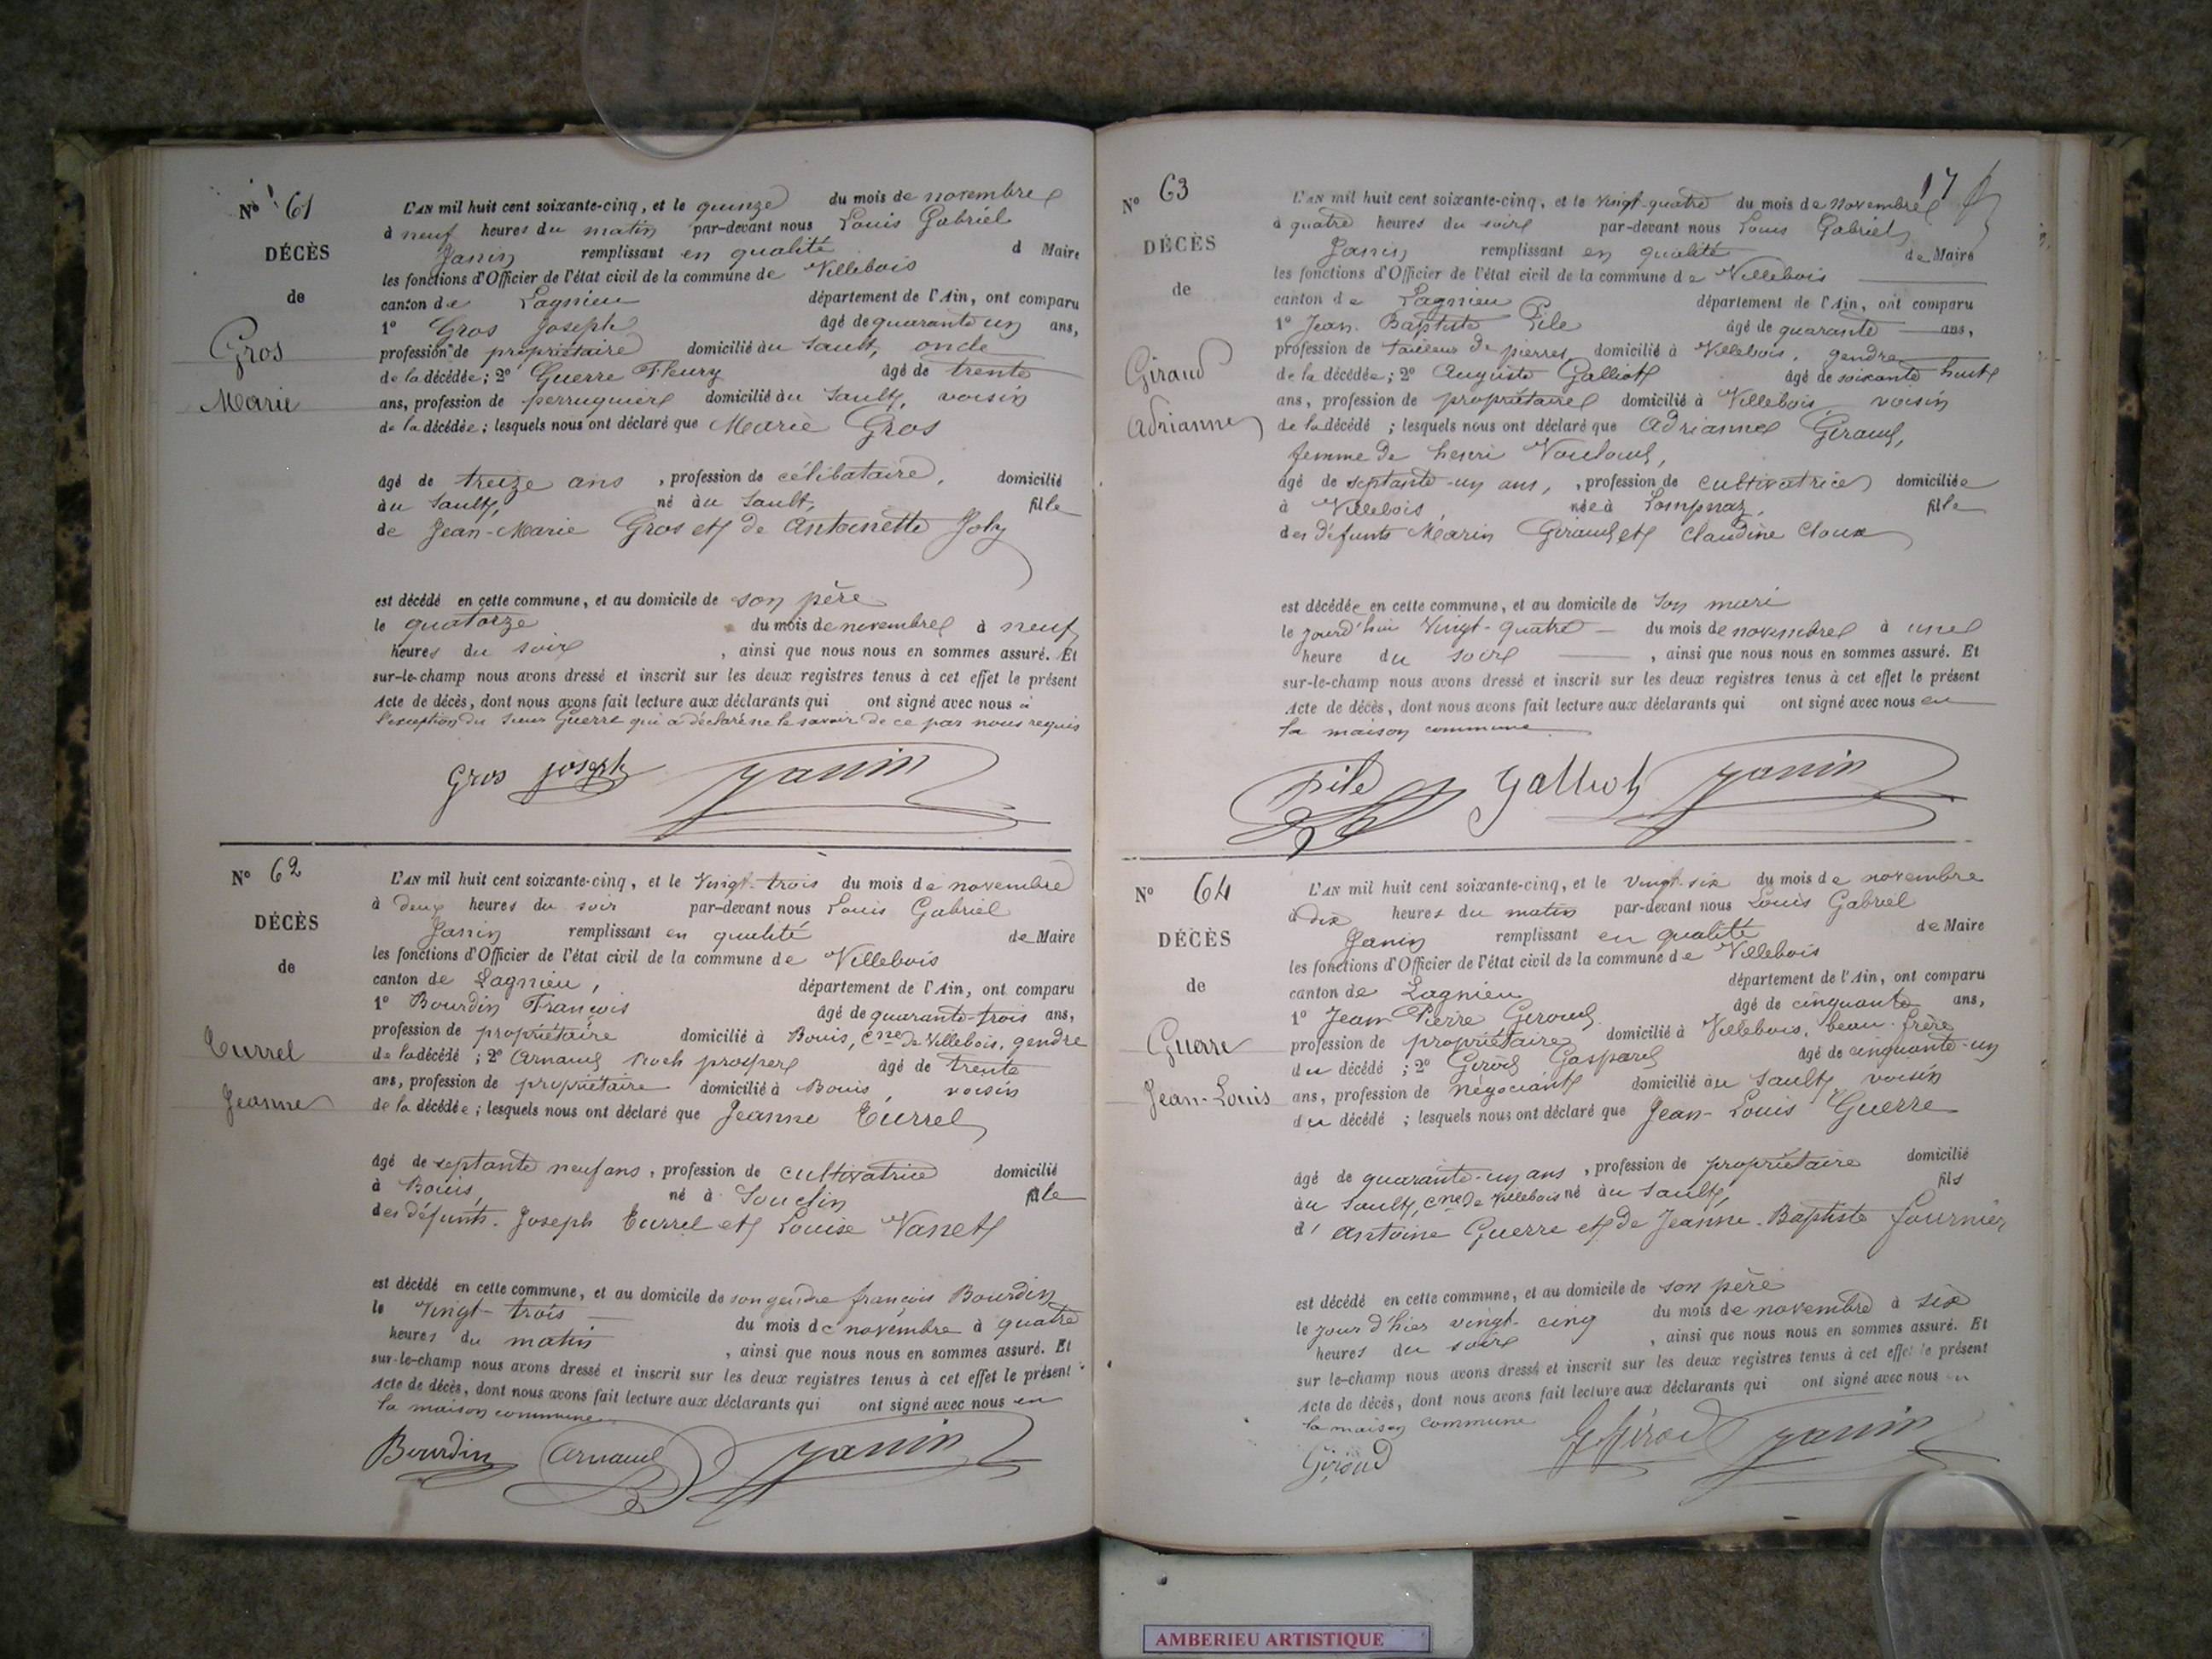 N° 61
DÉCÈS
de
Gros
Marie
L'AN mil huit cent soixante-cinq, et le quinze du mois de novembre
à neuf heures du matin par-devant nous Louis Gabriel
Janin remplissant en qualité d Maire
les fonctions d'Officier de l'état civil de la commune de Villebois
canton de Lagnieu département de l'Ain, ont comparu
1° Gros Joseph âgé de quarante un ans,
profession de propriétaire domicilié au Sault, oncle
de la décédée; 2° Guerre Fleury âgé de trente
ans, profession de perruquier domicilié au Sault, voisin
de la décédée; lesquels nous ont déclaré que Marie Gros
âgé de treize ans, profession de célibataire, domicilié
au Sault, né au Sault, fille
de Jean-Marie Gros et de Antoinette Joly
est décédé en cette commune, et au domicile de son père
le quatorze du mois de novembre à neuf
heures du soir, ainsi que nous nous en sommes assuré. Et
sur-le-champ nous avons dressé et inscrit sur les deux registres tenus à cet effet le présent
Acte de décès, dont nous avons fait lecture aux déclarants qui ont signé avec nous à
l'exception du sieur Guerre qui a déclaré ne le savoir de ce par nous requis
Gros joseph Janin
N° 62
DÉCÈS
de
Turrel
Jeanne
L'AN mil huit cent soixante-cinq, et le vingt-trois du mois de novembre
à deux heures du soir par-devant nous Louis Gabriel
Janin remplissant en qualité de Maire
les fonctions d'Officier de l'état civil de la commune de Villebois
canton de Lagnieu, département de l'Ain, ont comparu
1° Bourdin François âgé de quarante-trois ans,
profession de propriétaire domicilié à Bouis, cne de Villebois, gendre
de la décédé; 2° Arnaud Roch prosper âgé de trente
ans, profession de propriétaire domicilié à Bouis, voisin
de la décédée; lesquels nous ont déclaré que Jeanne Turrel
âgé de septante neuf ans, profession de cultivatrice domicilié
à Bouis, né à Souclin fille
des défunts Joseph Turrel et Louise Vanet
est décédé en cette commune, et au domicile de son gendre françois Bourdin
le vingt-trois du mois de novembre à quatre
heures du matin, ainsi que nous nous en sommes assuré. Et
sur-le-champ nous avons dressé et inscrit sur les deux registres tenus à cet effet le présent
Acte de décès, dont nous avons fait lecture aux déclarants qui ont signé avec nous en
la maison commune
Bourdin Arnaud Janin
17
N° 63
DÉCÈS
de
Giraud
Adrianne
L'AN mil huit cent soixante-cinq, et le vingt-quatre du mois de novembre
à quatre heures du soir par-devant nous Louis Gabriel
Janin remplissant en qualité de Maire
les fonctions d'Officier de l'état civil de la commune de Villebois
canton de Lagnieu département de l'Ain, ont comparu
1° Jean Baptiste Pile âgé de quarante ans,
profession de tailleur de pierres domicilié à Villebois, gendre
de la décédée; 2° Auguste Galliot âgé de soixante huit
ans, profession de propriétaire domicilié à Villebois, voisin
de la décédé; lesquels nous ont déclaré que Adrianne Giraud,
femme de henri Vouloud,
âgé de septante-un ans, profession de cultivatrice domiciliée
à Villebois, née à Lompnaz, fille
des défunts Marin Giraud et Claudine Cloux
est décédée en cette commune, et au domicile de son mari
le jourd'hui vingt-quatre du mois de novembre à une
heure du soir, ainsi que nous nous en sommes assuré. Et
sur-le-champ nous avons dressé et inscrit sur les deux registres tenus à cet effet le présent
Acte de décès, dont nous avons fait lecture aux déclarants qui ont signé avec nous en
la maison commune
Pile Galliot Janin
N° 64
DÉCÈS
de
Guerre
Jean-Louis
L'AN mil huit cent soixante-cinq, et le vingt-six du mois de novembre
à dix heures du matin par-devant nous Louis Gabriel
Janin remplissant en qualité de Maire
les fonctions d'Officier de l'état civil de la commune de Villebois
canton de Lagnieu département de l'Ain, ont comparu
1° Jean Pierre Giroud âgé de cinquante ans,
profession de propriétaire domicilié à Villebois, beau-frère
du décédé; 2° Girod Gaspard âgé de cinquante-un
ans, profession de négociant domicilié au Sault, voisin
du décédé; lesquels nous ont déclaré que Jean-Louis Guerre
âgé de quarante-un ans, profession de propriétaire domicilié
au Sault, cne de Villebois né au Sault, fils
d'Antoine Guerre et de Jeanne-Baptiste fournier
est décédé en cette commune, et au domicile de son père
le jour d'hier vingt-cinq du mois de novembre à six
heures du soir, ainsi que nous nous en sommes assuré. Et
sur le-champ nous avons dressé et inscrit sur les deux registres tenus à cet effet le présent
Acte de décès, dont nous avons fait lecture aux déclarants qui ont signé avec nous en
la maison commune
Giroud G Girod Janin
AMBERIEU ARTISTIQUE